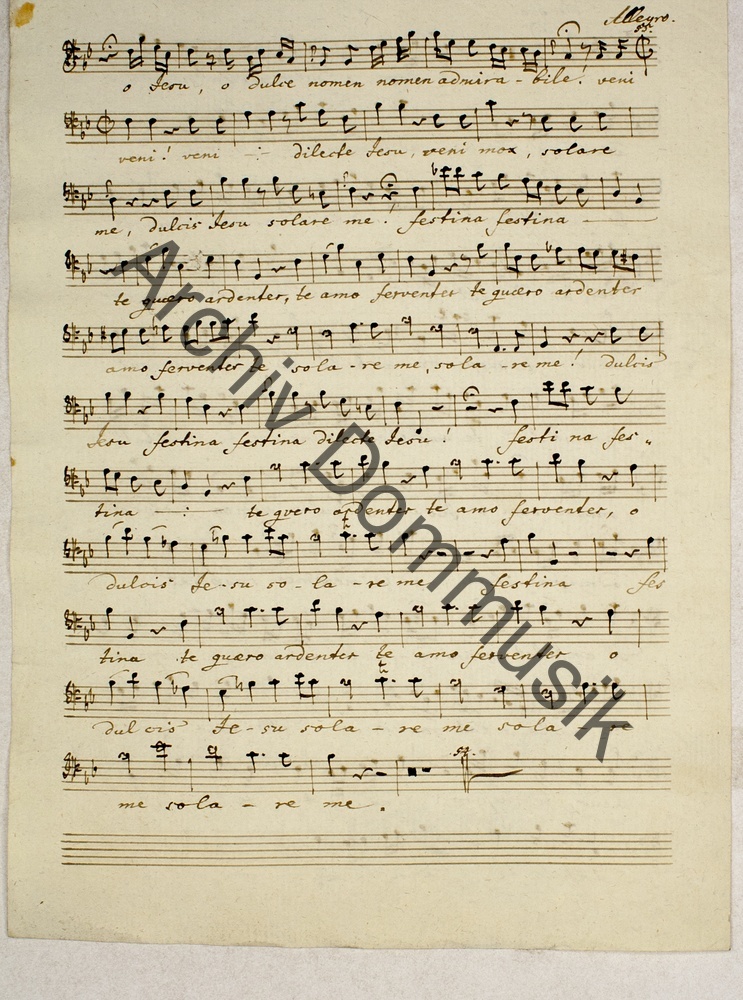 Allegro.
o Jesu, o dulce nomen nomen admira - bile! veni
veni! veni -:- dilecte Jesu, veni mox, solare
me, dulcis Jesu solare me! festina festina
te quæro ardenter, te amo ferventer te quæro ardenter
amo ferventer te sola - re me, sola - re me! dulcis
Jesu festina festina dilecte Jesu! festi na fes„
tina -:- te quero ardenter te amo ferventer, o
dulcis Je-su so - la - re me festina fes
tina te quæro ardenter te amo ferventer o
dulcis Je-su sola - re me sola re
me sola - re me.
Archiv Dommusik